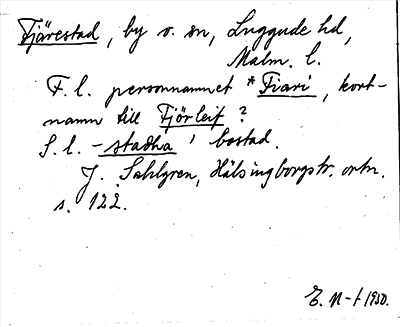 Fjärestad, by o. sn, Luggude hd,
Malm. l.
F. l. personnamnet *Fiari, kort-
namn till Fjörleif?
S. l. -stadha, bostad.
J. Sahlgren, Hälsingborgstr. ortn.
s. 122.
E. N-t 1950.